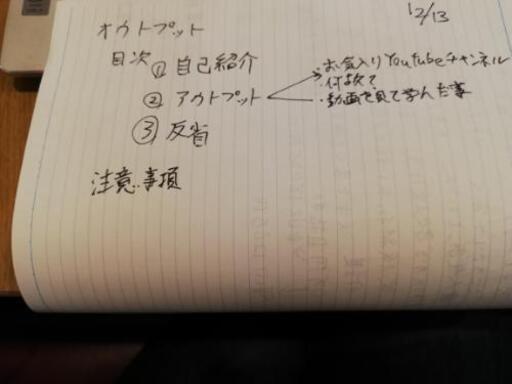 12/13
オウトプット
目次 ① 自己紹介
② アウトプット
・お気入りYouTubeチャンネル
・何故?
・動画を見て学んだ事
③ 反省
注意事項